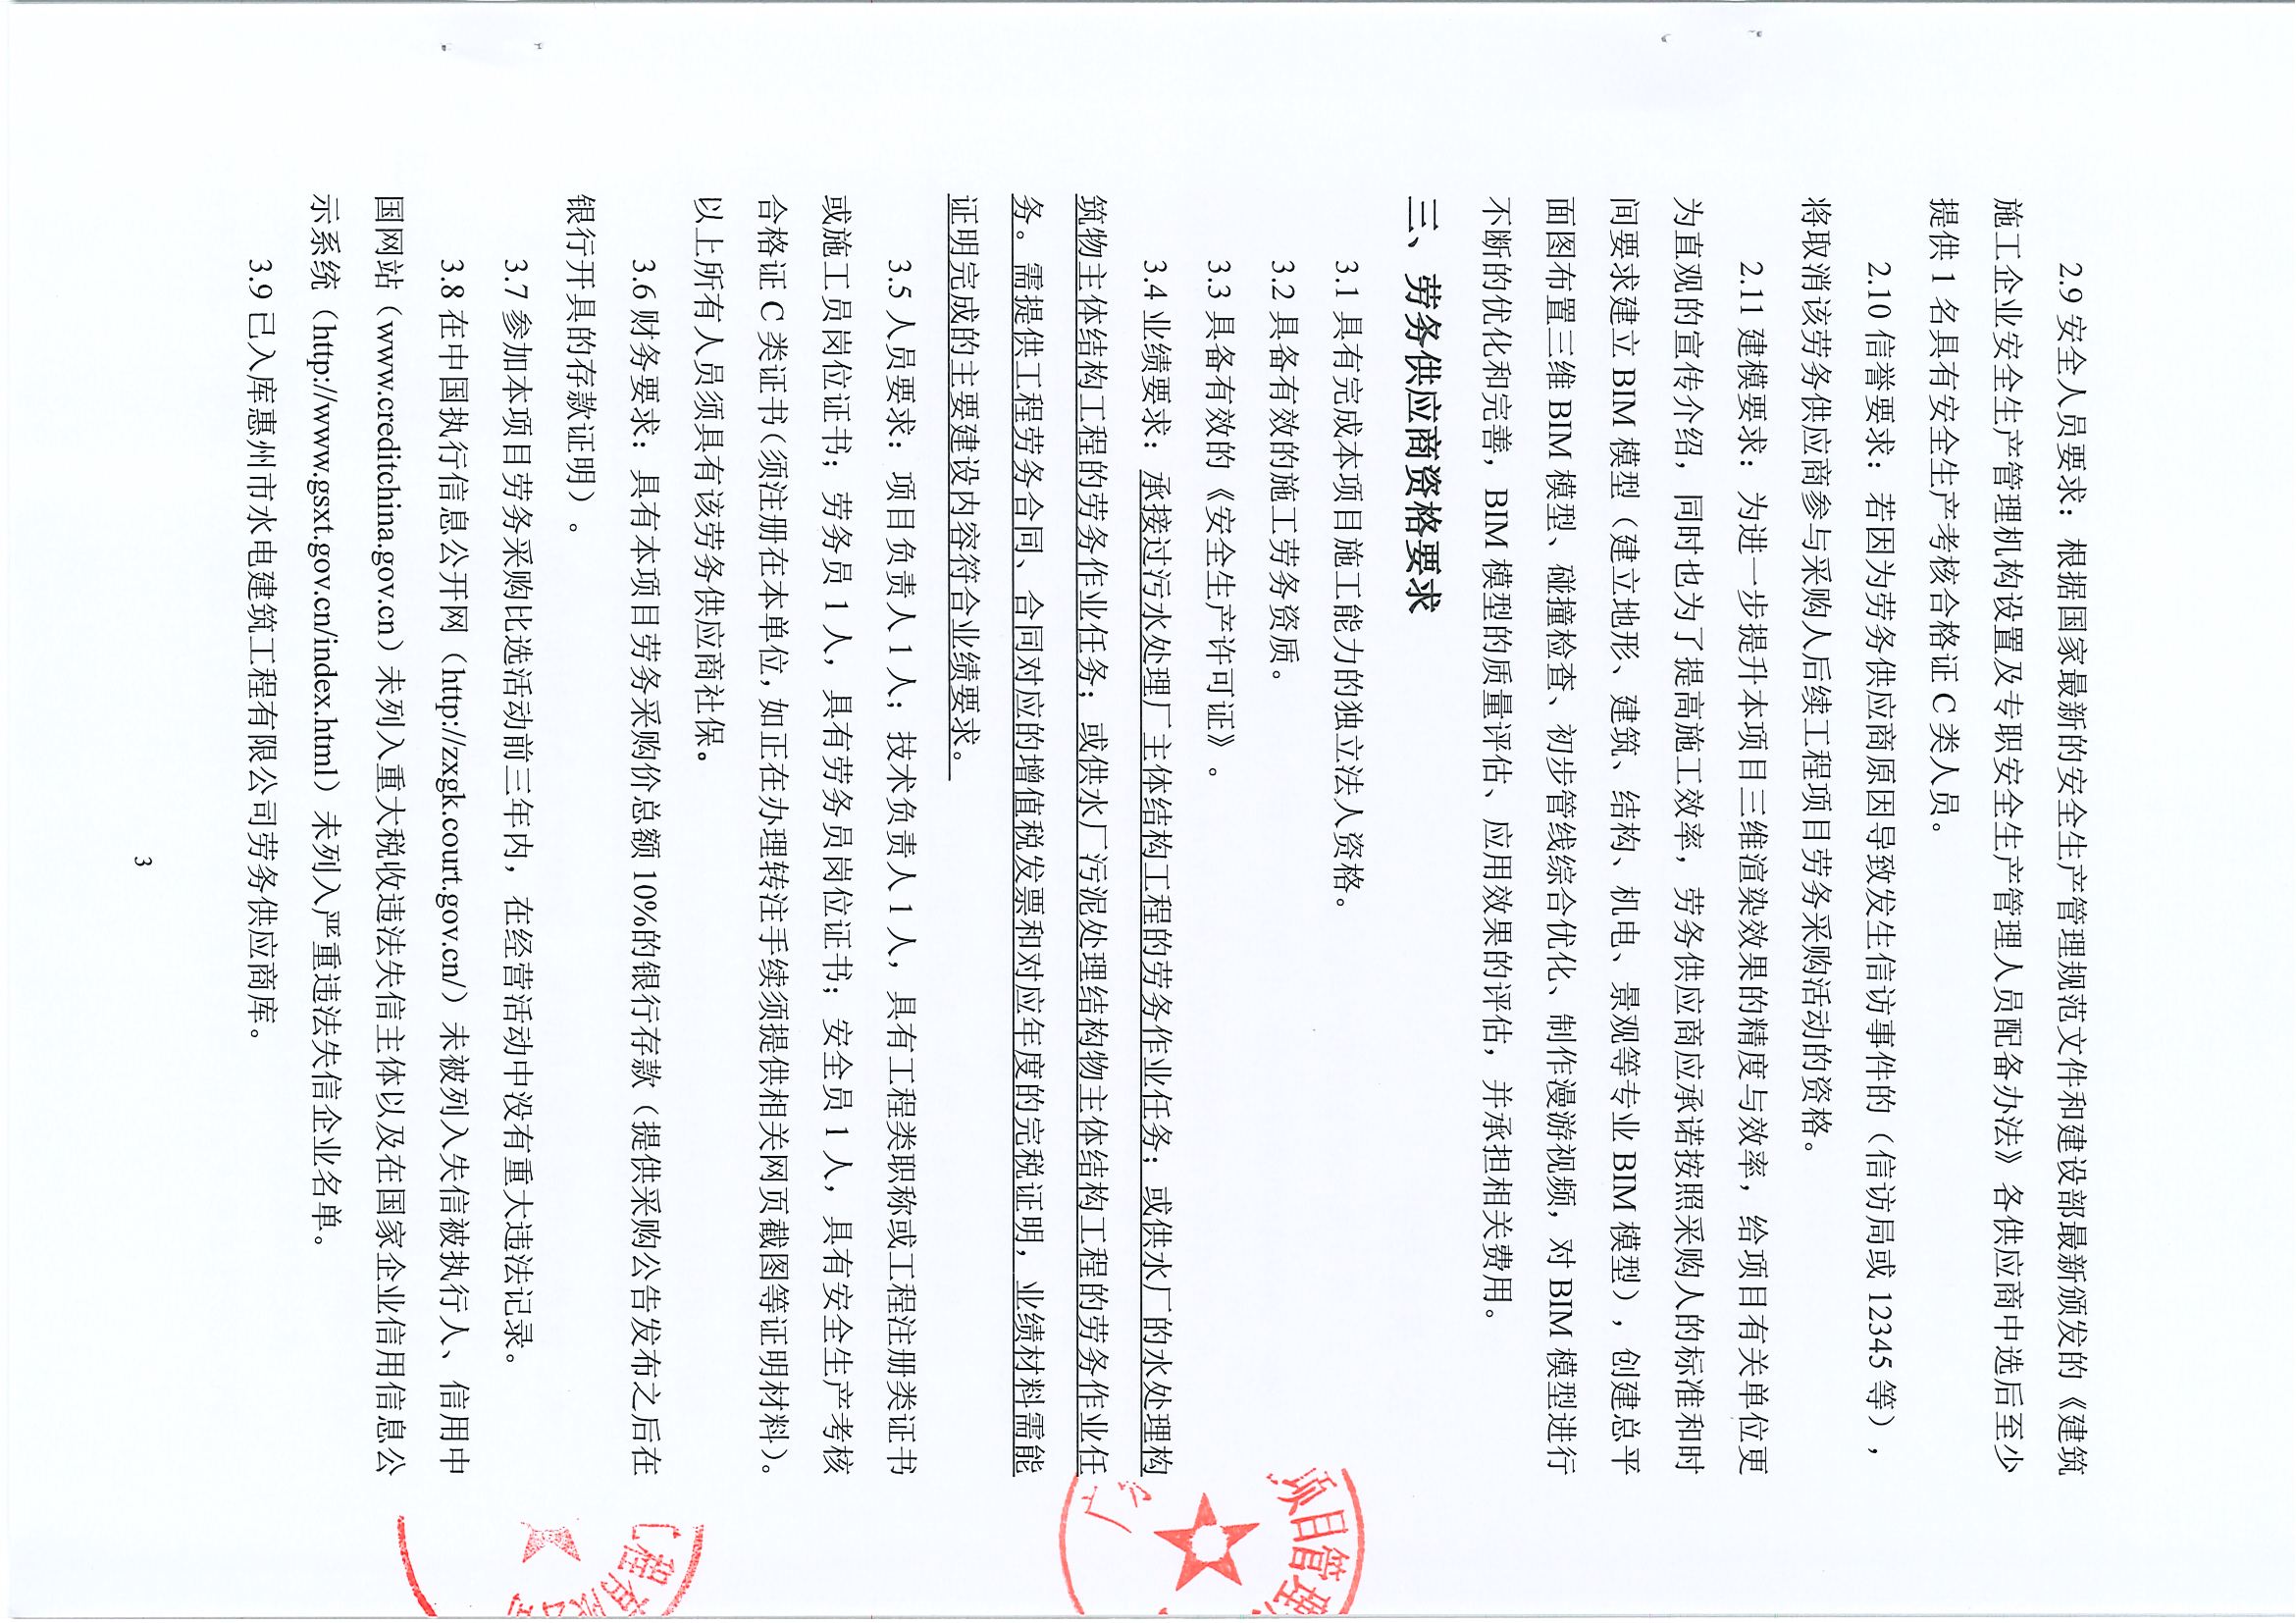 2.9 安全人员要求：根据国家最新的安全生产管理规范文件和建设部最新颁发的《建筑
施工企业安全生产管理机构设置及专职安全生产管理人员配备办法》各供应商中选后至少
提供 1 名具有安全生产考核合格证 C 类人员。
2.10 信誉要求：若因为劳务供应商原因导致发生信访事件的（信访局或 12345 等），
将取消该劳务供应商参与采购人后续工程项目劳务采购活动的资格。
2.11 建模要求：为进一步提升本项目三维渲染效果的精度与效率，给项目有关单位更
为直观的宣传介绍，同时也为了提高施工效率，劳务供应商应承诺按照采购人的标准和时
间要求建立 BIM 模型（建立地形、建筑、结构、机电、景观等专业 BIM 模型），创建总平
面图布置三维 BIM 模型、碰撞检查、初步管线综合优化、制作漫游视频，对 BIM 模型进行
不断的优化和完善，BIM 模型的质量评估、应用效果的评估，并承担相关费用。
三、劳务供应商资格要求
3.1 具有完成本项目施工能力的独立法人资格。
3.2 具备有效的施工劳务资质。
3.3 具备有效的《安全生产许可证》。
3.4 业绩要求：承接过污水处理厂主体结构工程的劳务作业任务；或供水厂的水处理构
筑物主体结构工程的劳务作业任务；或供水厂污泥处理结构物主体结构工程的劳务作业任
务。需提供工程劳务合同、合同对应的增值税发票和对应年度的完税证明，业绩材料需能
证明完成的主要建设内容符合业绩要求。
3.5 人员要求：项目负责人 1 人；技术负责人 1 人，具有工程类职称或工程注册类证书
或施工员岗位证书；劳务员 1 人，具有劳务员岗位证书；安全员 1 人，具有安全生产考核
合格证 C 类证书（须注册在本单位，如正在办理转注手续须提供相关网页截图等证明材料）。
以上所有人员须具有该劳务供应商社保。
3.6 财务要求：具有本项目劳务采购价总额 10%的银行存款（提供采购公告发布之后在
银行开具的存款证明）。
3.7 参加本项目劳务采购比选活动前三年内，在经营活动中没有重大违法记录。
3.8 在中国执行信息公开网（http://zxgk.court.gov.cn/）未被列入失信被执行人、信用中
国网站（www.creditchina.gov.cn）未列入重大税收违法失信主体以及在国家企业信用信息公
示系统（http://www.gsxt.gov.cn/index.html）未列入严重违法失信企业名单。
3.9 已入库惠州市水电建筑工程有限公司劳务供应商库。
3
项目管理
程有限公司